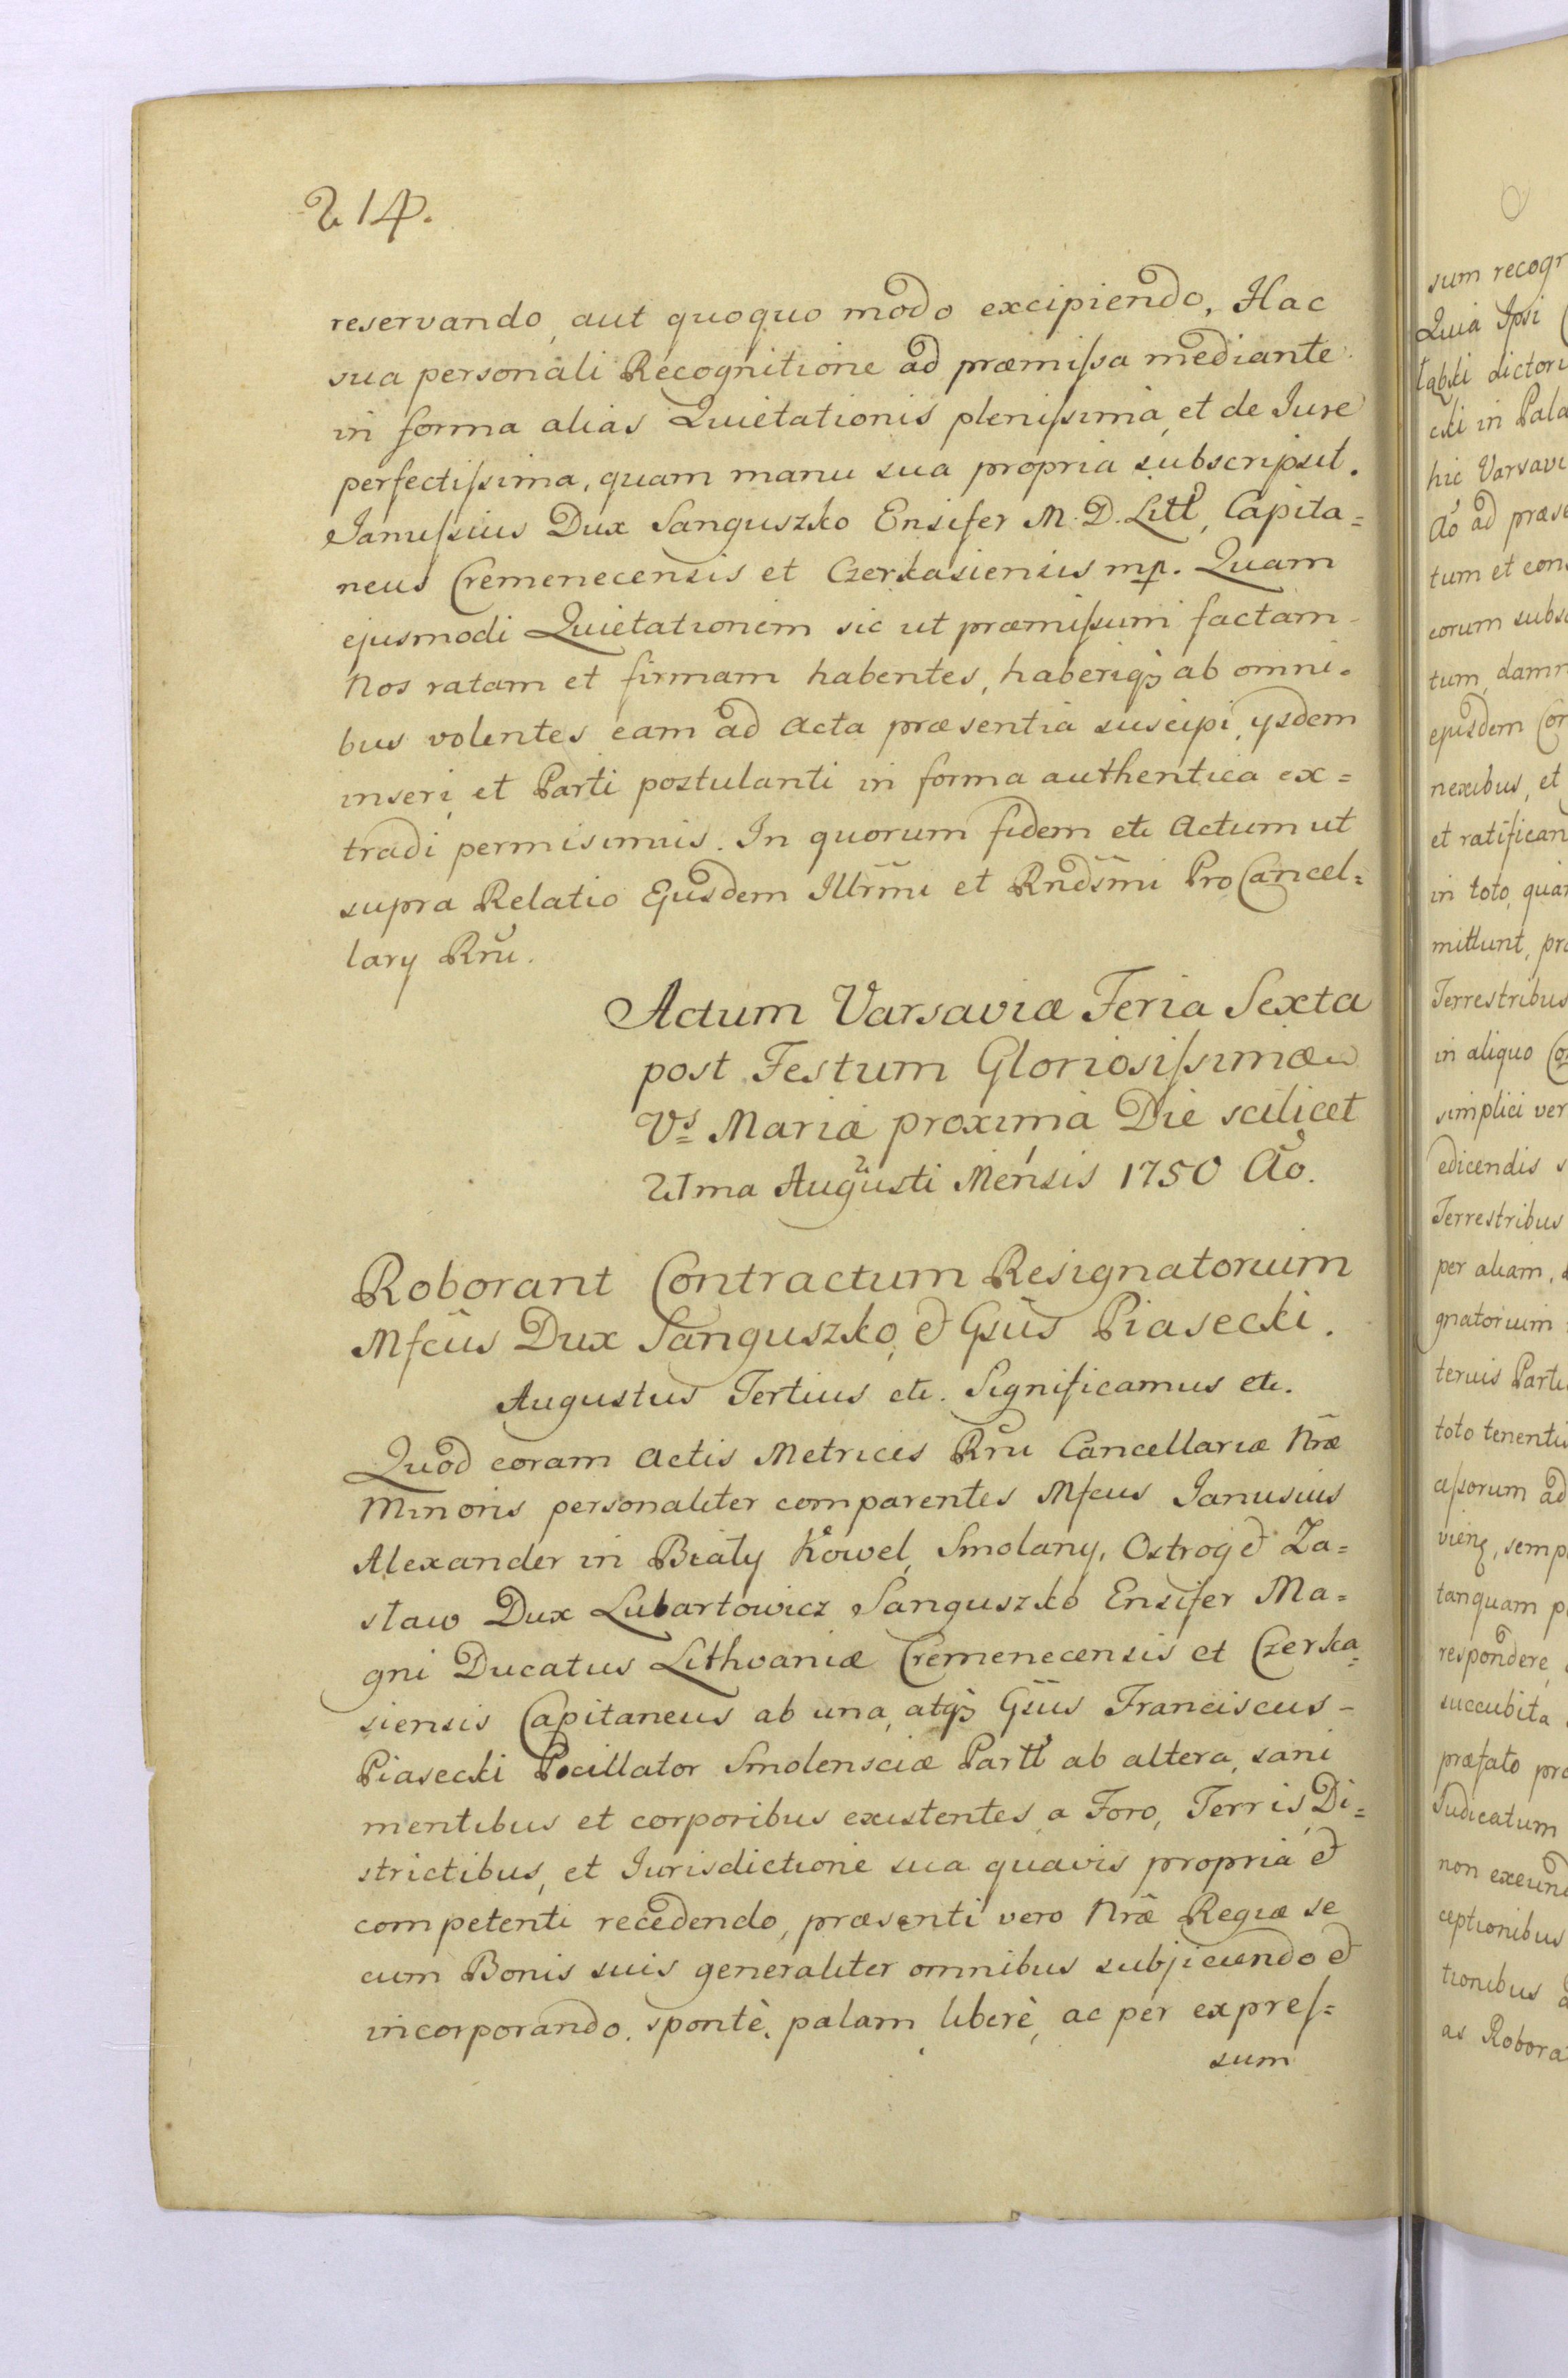 214.
reservando, aut quoquo modo excipiendo, Hac
sua personali Recognitione ad præmiſsa mediante
in forma alias Quietationis pleniſsima, et de Jure
perfectiſsima, quam manu sua propria subscripsit.
Januſsius Dux Sanguszko Ensifer M. D. Litt, Capita=
neus Cremenecensis et Czerkasiensis mp. Quam
ejusmodi Quietationem sic ut præmiſsum factam
Nos ratam et firmam habentes, haberiqꝫ ab omni=
bus volentes eam ad Acta præsentia suscipi, ysdem
inseri, et Parti postulanti in forma authentica ex=
tradi permisimus. In quorum fidem etc Actum ut
supra Relatio Ejusdem Illrm̃i et Rnds̃mi ProCancel=
lary Rñu.
Actum Varsaviæ Feria Sexta
post Festum Gloriosiſsimæ
Vs Mariæ proxima Die scilicet
21ma Augusti Mensis 1750 Ao.
Roborant Contractum Resignatorium
Mfcus Dux Sanguszko, & Gsus Piasecki.
Augustus Tertius etc. Significamus etc.
Quod coram Actis Metrices Rñu Cancellariæ Nr̃æ
Minoris personaliter comparentes Mfcus Janusius
Alexander in Biały Kowel, Smolany, Ostrog & Za=
sław Dux Lubartowicz Sanguszko Ensifer Ma=
gni Ducatus Lithvaniæ Cremenecensis et Czerka=
siensis Capitaneus ab una, atqꝫ Gsus Franciscus
Piasecki Pocillator Smolensciæ Partt ab altera, sani
mentibus et corporibus existentes, a Foro, Terris, Di=
strictibus, et Jurisdictione sua quavis propria &
competenti recedendo, præsenti vero Nr̃æ Regiæ se
cum Bonis suis generaliter omnibus subjiciendo &
incorporando, spontè, palam liberè, ac per expreſ=
sum
sum recogn
Quia Ipsi
dictoru
cki in Pala
hic Varsavi
Ao ad præse
tum et con
eorum subsc
tum, damn
ejusdem Con
nexibus, et
et ratifican
in toto, quan
mittunt, pro
Terrestribus
in aliquo Co
simplici ver
edicendis s
Terrestribus
per aliam,
gnatorium
teruis Parti
toto tenentu
aſsorum ad
semp
tanquam p
respondere,
succubita
præfato pro
Judicatum
non exeund
ceptionibus
tionibus
as Robora